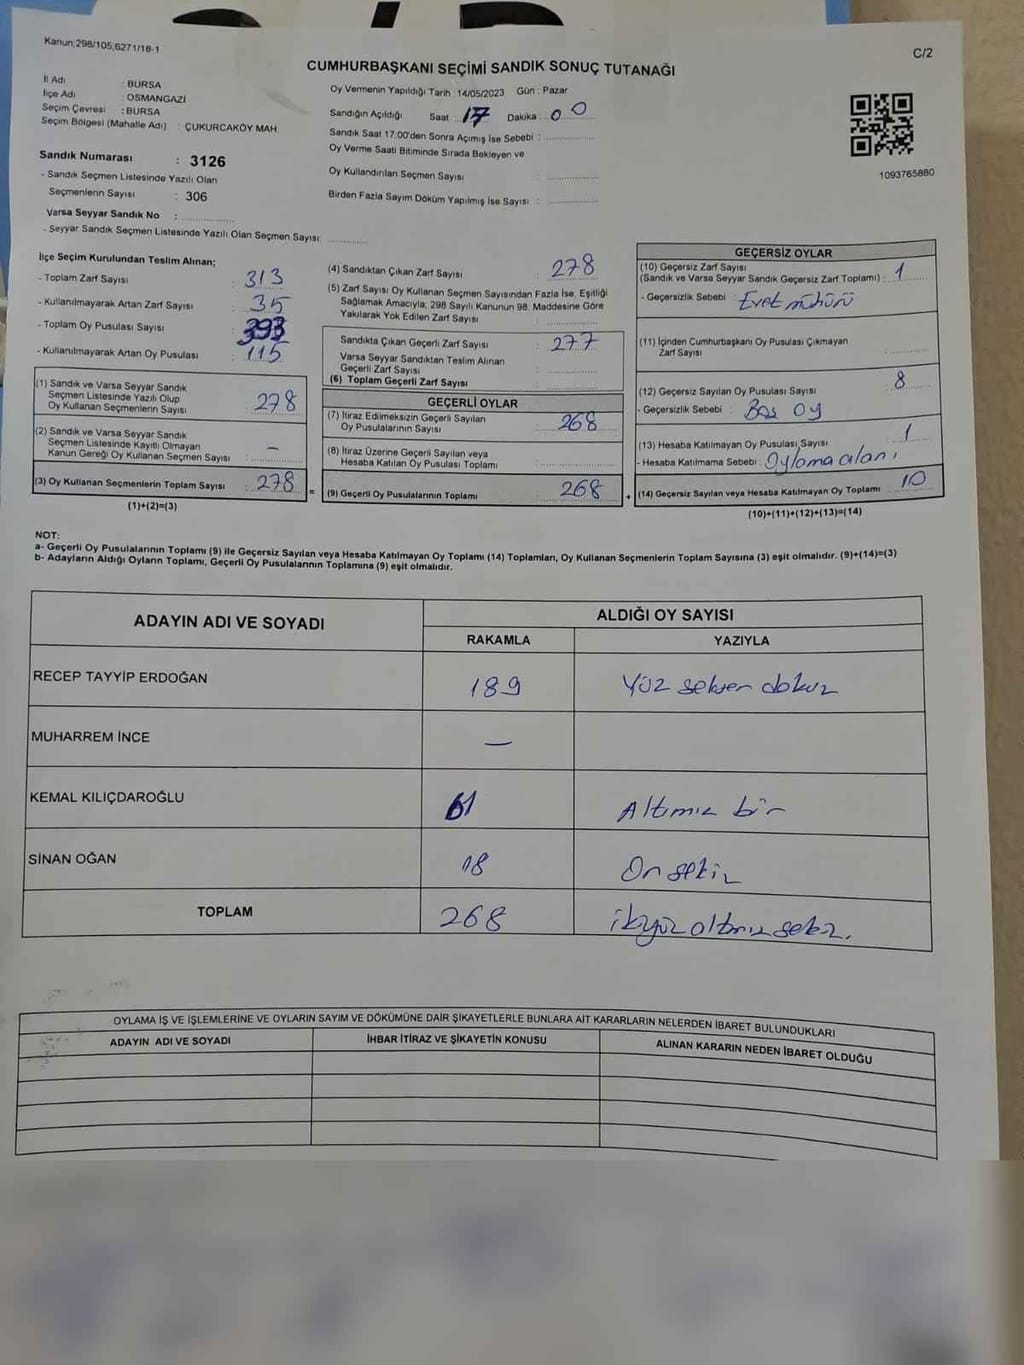 Kanun;298/105,6271/18-1
C/2
CUMHURBAŞKANI SEÇİMİ SANDIK SONUÇ TUTANAĞI
İl Adı : BURSA
İlçe Adı : OSMANGAZİ
Seçim Çevresi : BURSA
Seçim Bölgesi (Mahalle Adı) : ÇUKURCAKÖY MAH.
Oy Vermenin Yapıldığı Tarih :14/05/2023 Gün : Pazar
Sandığın Açıldığı Saat 17 Dakika 00
Sandık Saat 17:00'den Sonra Açımış İse Sebebi :
Oy Verme Saati Bitiminde Sırada Bekleyen ve
Oy Kullandırılan Seçmen Sayısı :
Birden Fazla Sayım Döküm Yapılmış İse Sayısı :
1093765880
Sandık Numarası : 3126
- Sandık Seçmen Listesinde Yazılı Olan
Seçmenlerin Sayısı : 306
Varsa Seyyar Sandık No :
- Seyyar Sandık Seçmen Listesinde Yazılı Olan Seçmen Sayısı:
İlçe Seçim Kurulundan Teslim Alınan;
- Toplam Zarf Sayısı : 313
- Kullanılmayarak Artan Zarf Sayısı : 35
- Toplam Oy Pusulası Sayısı : 393
- Kullanılmayarak Artan Oy Pusulası : 115
(1) Sandık ve Varsa Seyyar Sandık
Seçmen Listesinde Yazılı Olup
Oy Kullanan Seçmenlerin Sayısı : 278
(2) Sandık ve Varsa Seyyar Sandık
Seçmen Listesinde Kayıtlı Olmayan
Kanun Gereği Oy Kullanan Seçmen Sayısı : —
(3) Oy Kullanan Seçmenlerin Toplam Sayısı : 278
(1)+(2)=(3)
(4) Sandıktan Çıkan Zarf Sayısı : 278
(5) Zarf Sayısı Oy Kullanan Seçmen Sayısından Fazla İse, Eşitliği
Sağlamak Amacıyla; 298 Sayılı Kanunun 98. Maddesine Göre
Yakılarak Yok Edilen Zarf Sayısı :
Sandıkta Çıkan Geçerli Zarf Sayısı : 277
Varsa Seyyar Sandıktan Teslim Alınan
Geçerli Zarf Sayısı :
(6) Toplam Geçerli Zarf Sayısı :
GEÇERLİ OYLAR
(7) İtiraz Edilmeksizin Geçerli Sayılan
Oy Pusulalarının Sayısı : 268
(8) İtiraz Üzerine Geçerli Sayılan veya
Hesaba Katılan Oy Pusulası Toplamı :
= (9) Geçerli Oy Pusulalarının Toplamı : 268 +
GEÇERSİZ OYLAR
(10) Geçersiz Zarf Sayısı
(Sandık ve Varsa Seyyar Sandık Geçersiz Zarf Toplamı) : 1
- Geçersizlik Sebebi : Evet mührü
(11) İçinden Cumhurbaşkanı Oy Pusulası Çıkmayan
Zarf Sayısı :
(12) Geçersiz Sayılan Oy Pusulası Sayısı : 8
- Geçersizlik Sebebi : Boş oy
(13) Hesaba Katılmayan Oy Pusulası Sayısı : 1
- Hesaba Katılmama Sebebi : Oylama alanı
(14) Geçersiz Sayılan veya Hesaba Katılmayan Oy Toplamı : 10
(10)+(11)+(12)+(13)=(14)
NOT:
a- Geçerli Oy Pusulalarının Toplamı (9) ile Geçersiz Sayılan veya Hesaba Katılmayan Oy Toplamı (14) Toplamları, Oy Kullanan Seçmenlerin Toplam Sayısına (3) eşit olmalıdır. (9)+(14)=(3)
b- Adayların Aldığı Oyların Toplamı, Geçerli Oy Pusulalarının Toplamına (9) eşit olmalıdır.
ADAYIN ADI VE SOYADI
ALDIĞI OY SAYISI
RAKAMLA YAZIYLA
RECEP TAYYİP ERDOĞAN 189 Yüz seksen dokuz
MUHARREM İNCE —
KEMAL KILIÇDAROĞLU 61 Altmış bir
SİNAN OĞAN 18 On sekiz
TOPLAM 268 ikiyüz altmış sekiz.
OYLAMA İŞ VE İŞLEMLERİNE VE OYLARIN SAYIM VE DÖKÜMÜNE DAİR ŞİKAYETLERLE BUNLARA AİT KARARLARIN NELERDEN İBARET BULUNDUKLARI
ADAYIN ADI VE SOYADI İHBAR İTİRAZ VE ŞİKAYETİN KONUSU ALINAN KARARIN NEDEN İBARET OLDUĞU